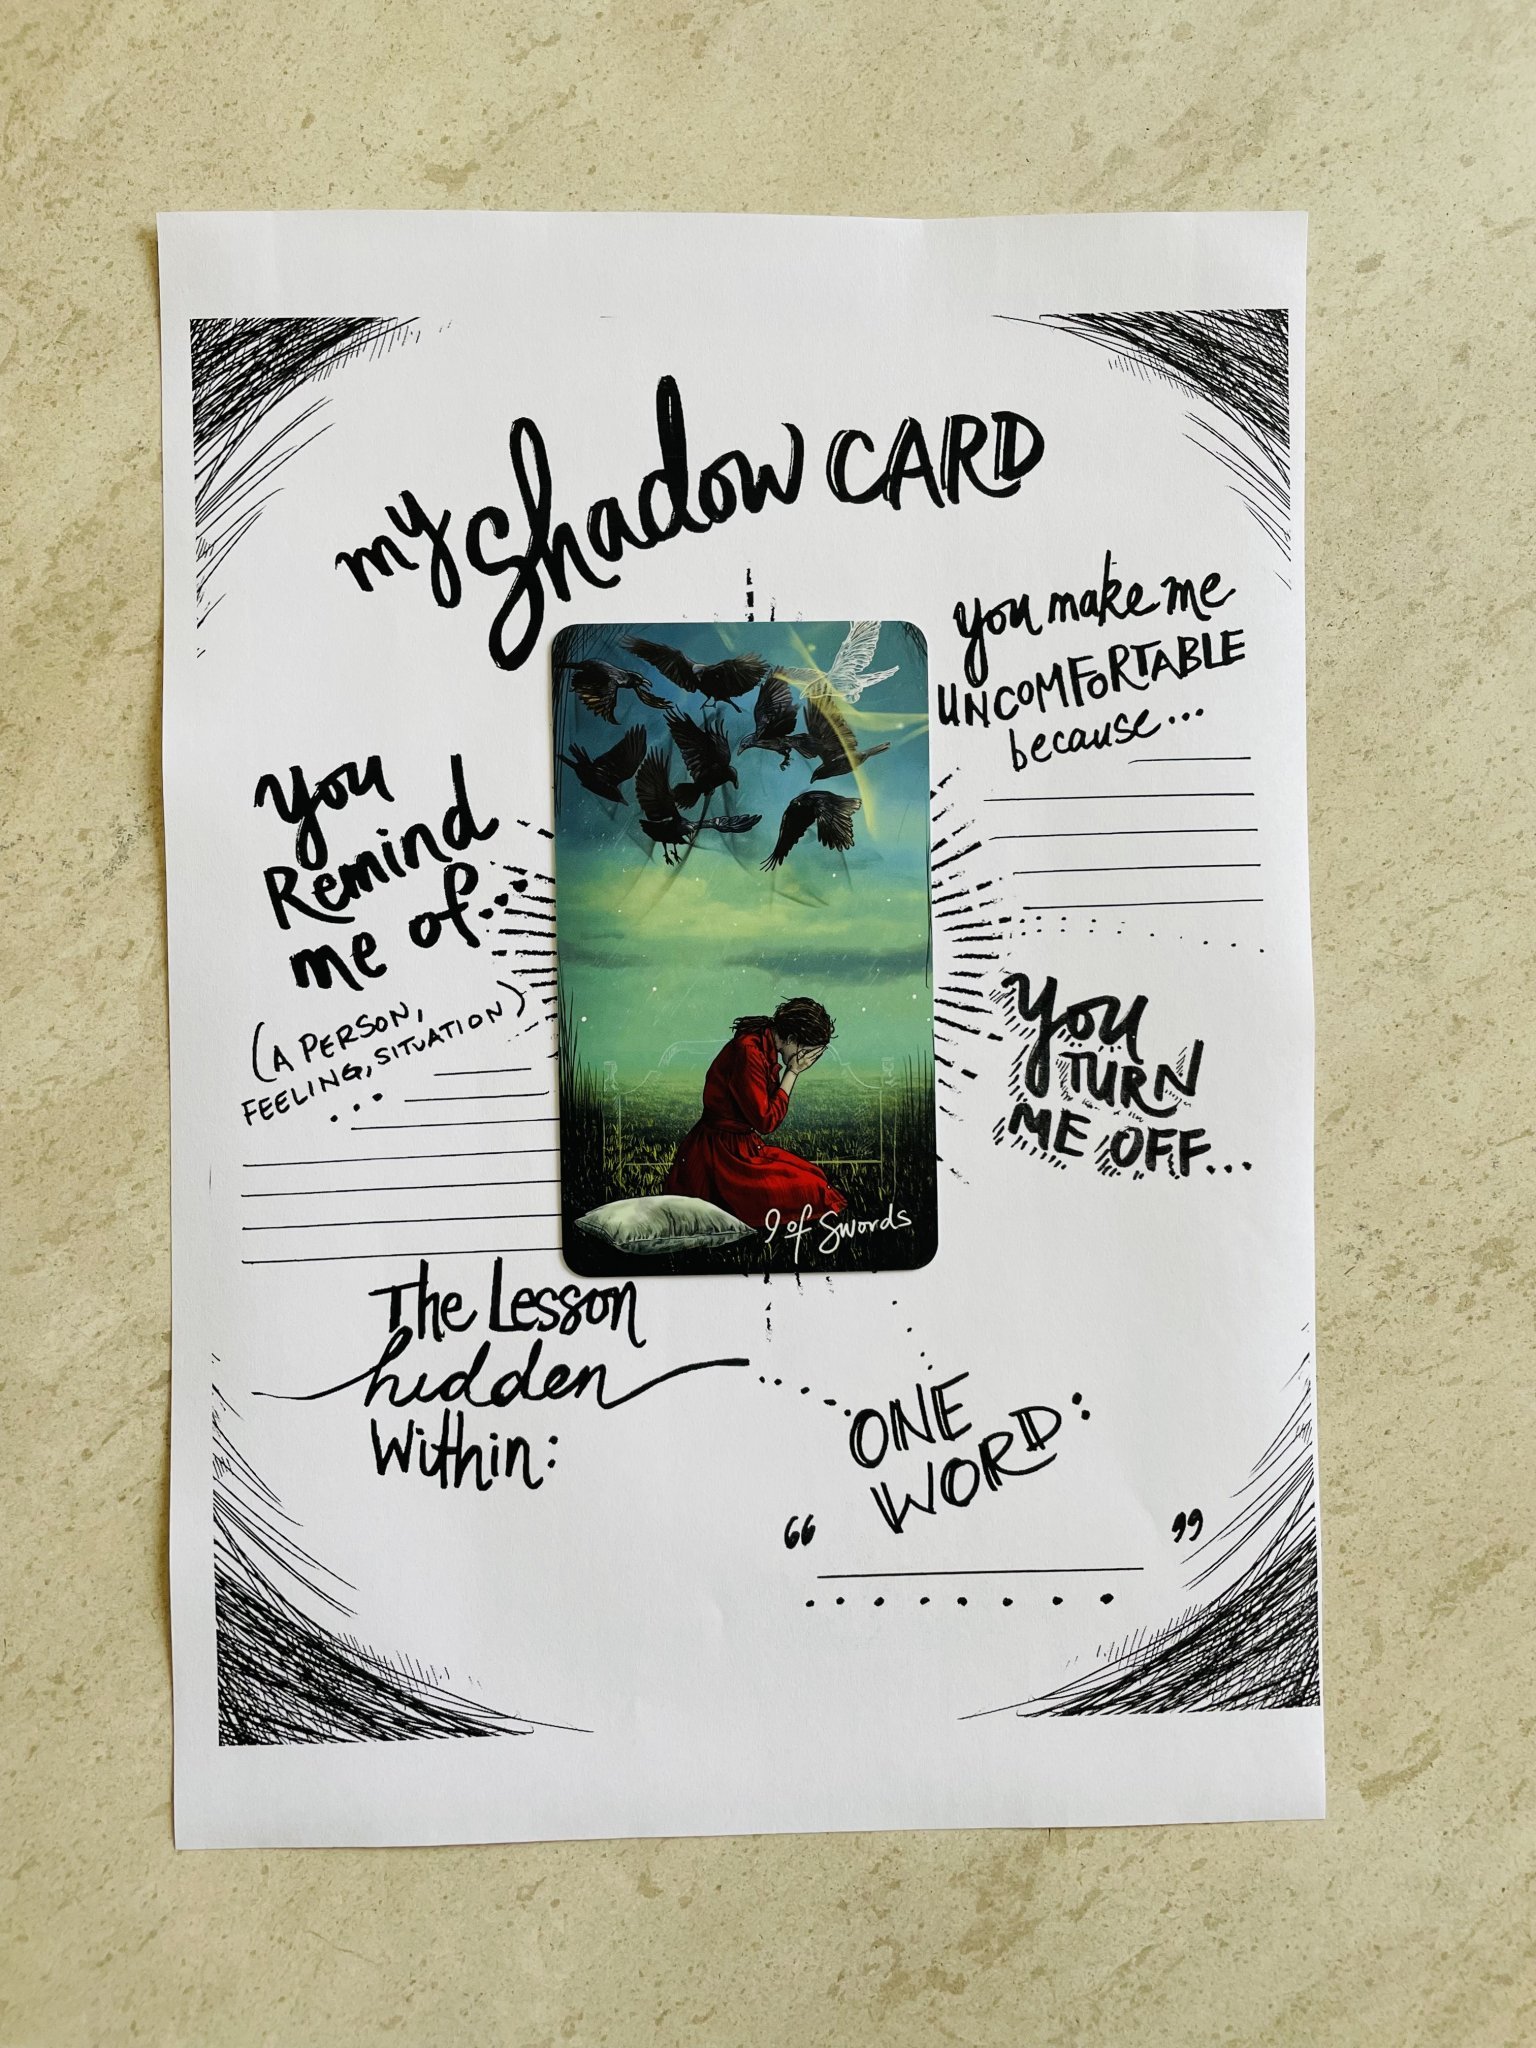 my Shadow CARD
You make me
UNCOMFORTABLE
because...
You
Remind
me of...
(A PERSON,
FEELING, SITUATION)
...
You
TURN
ME OFF...
9 of Swords
The Lesson
hidden
Within:
ONE
WORD:
“ ”